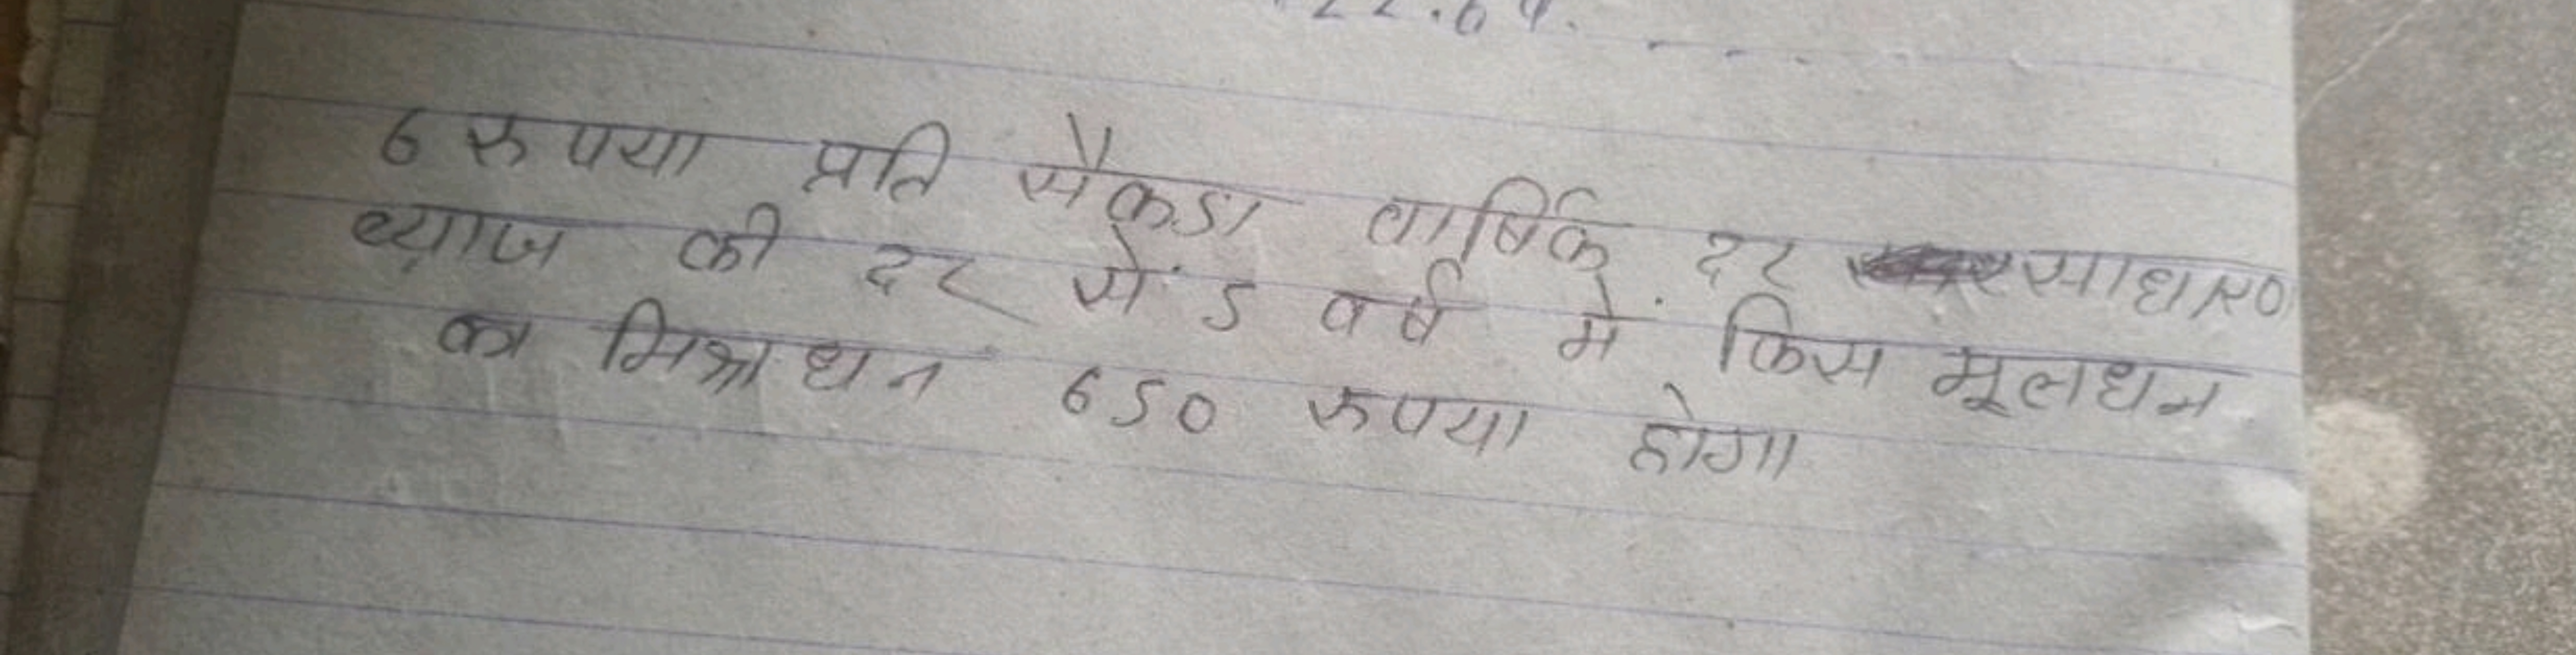 6 रुपया प्रति सैकडा वार्षिक दर साधारण
ब्याज की दर से 5 वर्ष में किस मूलधन
का मिश्राधन 650 रुपया होगा